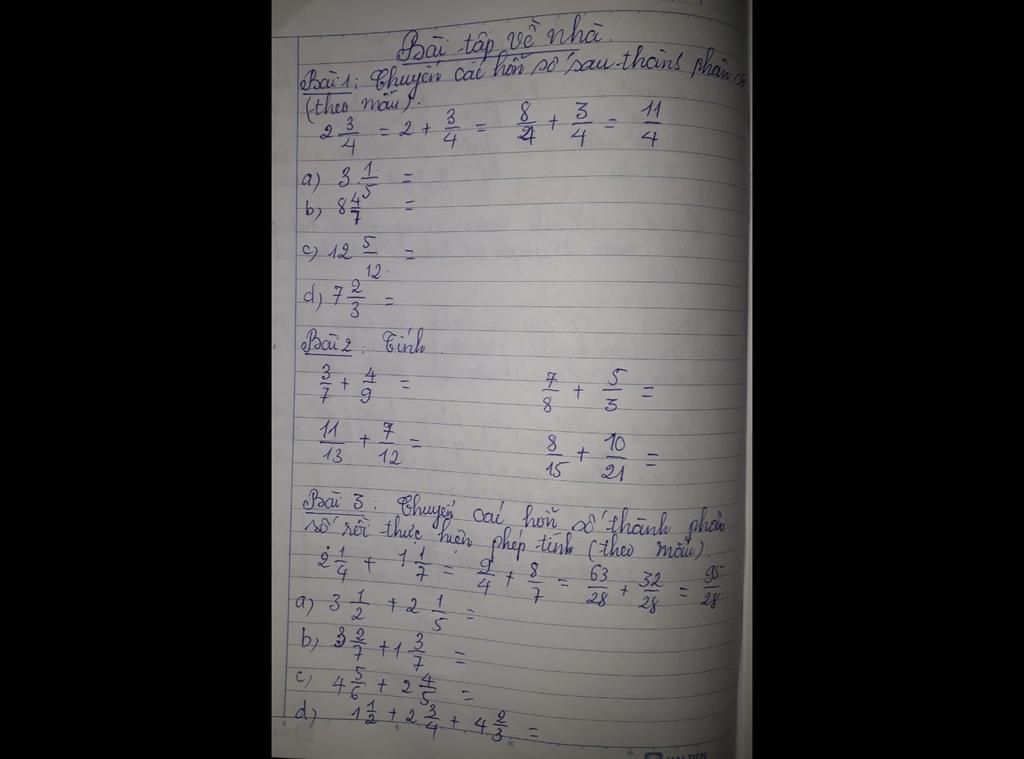 Bài tập về nhà.
Bài 1: Chuyển các hỗn số sau thành phân số
(theo mẫu).
2 3/4 = 2 + 3/4 = 8/4 + 3/4 = 11/4
a) 3 1/5 =
b) 8 4/7 =
c) 12 5/12 =
d) 7 2/3 =
Bài 2: Tính.
3/7 + 4/9 = 7/8 + 5/3 =
11/13 + 7/12 = 8/15 + 10/21 =
Bài 3: Chuyển các hỗn số thành phân
số rồi thực hiện phép tính (theo mẫu).
2 1/4 + 1 1/7 = 9/4 + 8/7 = 63/28 + 32/28 = 95/28
a) 3 1/2 + 2 1/5 =
b) 3 2/7 + 1 3/7 =
c) 4 5/6 + 2 4/5 =
d) 1 1/2 + 2 3/4 + 4 2/3 =